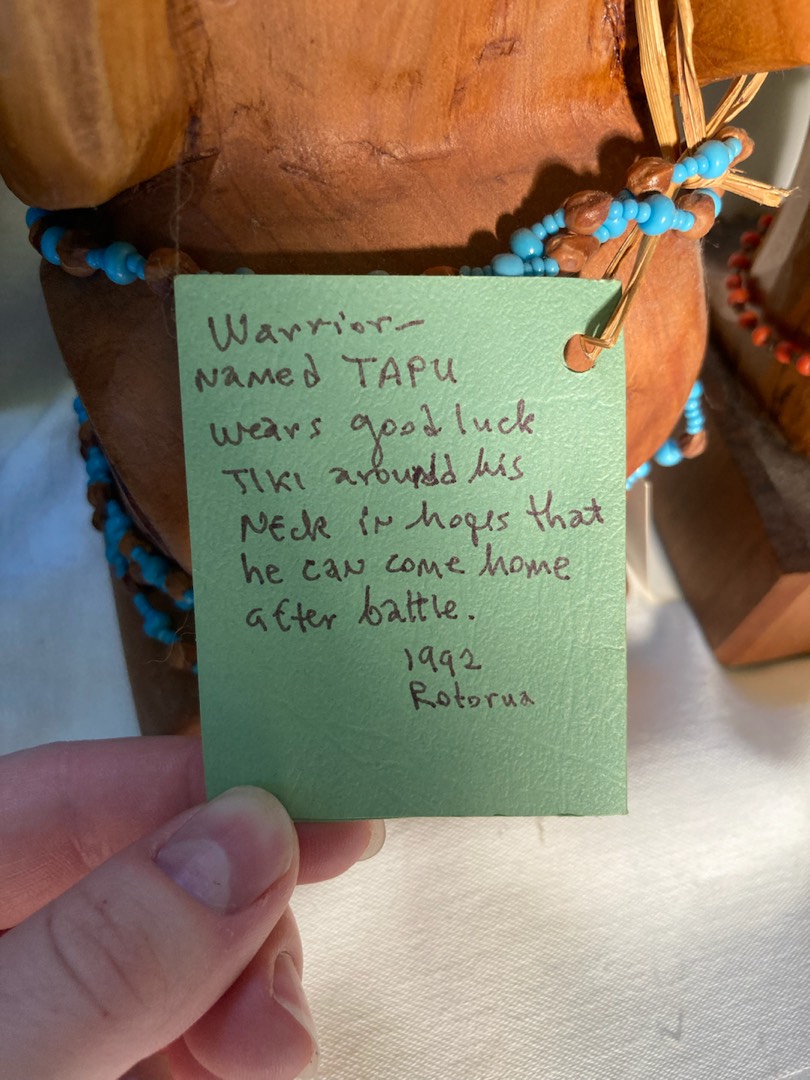 Warrior—
NAMed TAPU
wears good luck
TIKI around his
NEck iN hopes that
he cAN come home
after battle.
1992
Rotorua